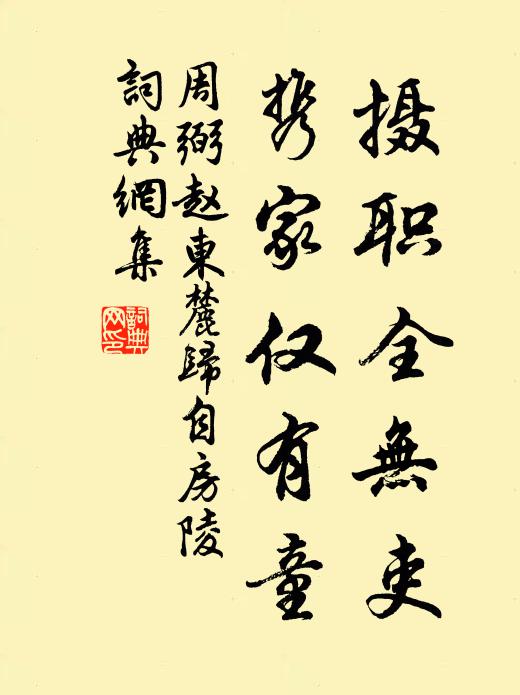 摄职全無吏
携家仅有童
周弼赵東麓歸自房陵
詞典網集
詞典网印